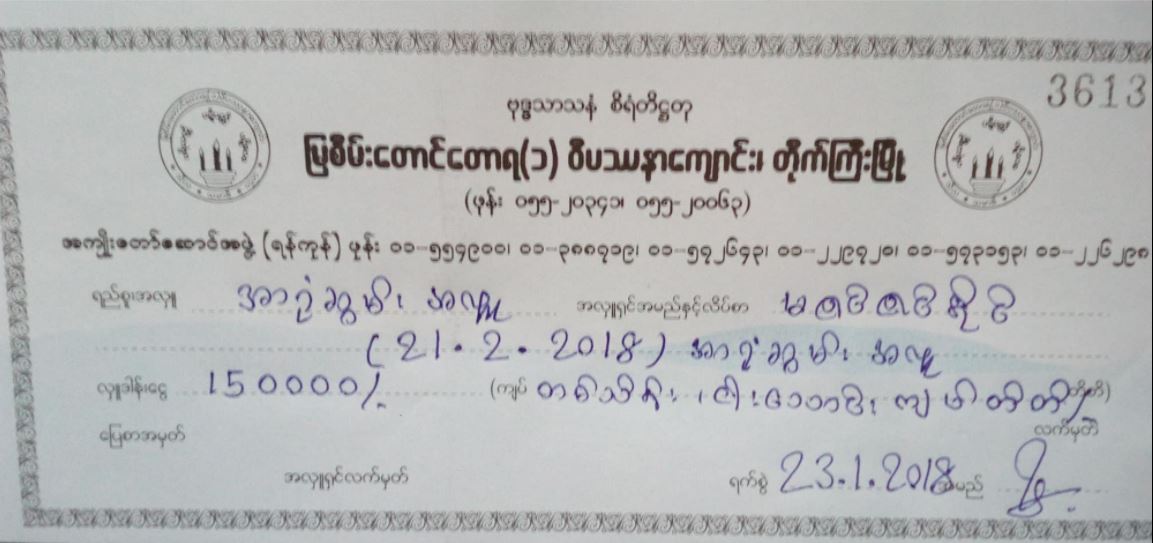 3613
ဗုဒ္ဓသာသနံ စိရံတိဋ္ဌတု
မြစိမ်းတောင်တောရ(၁) ဝိပဿနာကျောင်း၊ တိုက်ကြီးမြို့
(ဖုန်း ၀၅၅-၂၀၃၄၁၊ ၀၅၅-၂၀၀၆၃)
အကျိုးတော်ဆောင်အဖွဲ့ (ရန်ကုန်) ဖုန်း ၀၁-၅၅၄၉၀၀၊ ၀၁-၃၈၈၇၁၉၊ ၀၁-၅၇၂၆၄၃၊ ၀၁-၂၂၉၇၂၀၊ ၀၁-၅၇၃၁၅၃၊ ၀၁-၂၂၆၂၉၈
ရည်စူးအလှူ အာရုံဆွမ်း အလှူ အလှူရှင်အမည်နှင့်လိပ်စာ မဇာဇာ
(21.2.2018) အာရုံဆွမ်း အလှူ
လှူဒါန်းငွေ 150000/. (ကျပ် တစ်သိန်း ၊ ငါးသောင်း ကျပ်တိတိ တိတိ)
ပြေစာအမှတ် လက်မှတ်
အလှူရှင်လက်မှတ် ရက်စွဲ 23.1.2018 အမည်